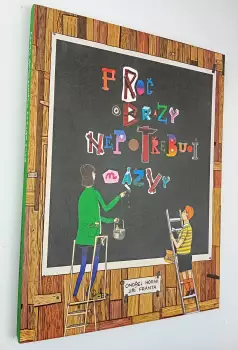 PROČ
OBRAZY
NEPOTŘEBUJÍ
NÁZVY
ONDŘEJ HORÁK
JIŘÍ FRANTA